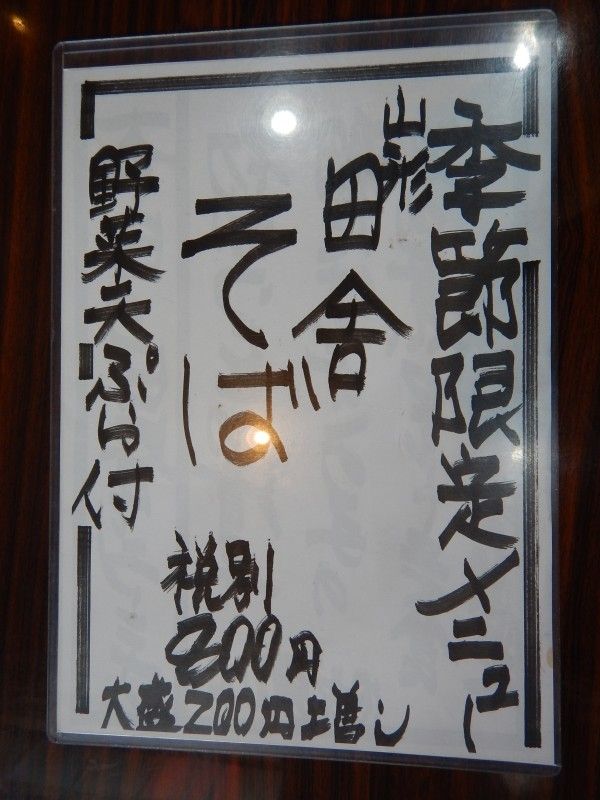 季節限定メニュー
山形
田舎
そば
野菜天ぷら付
税別
800円
大盛200円増し